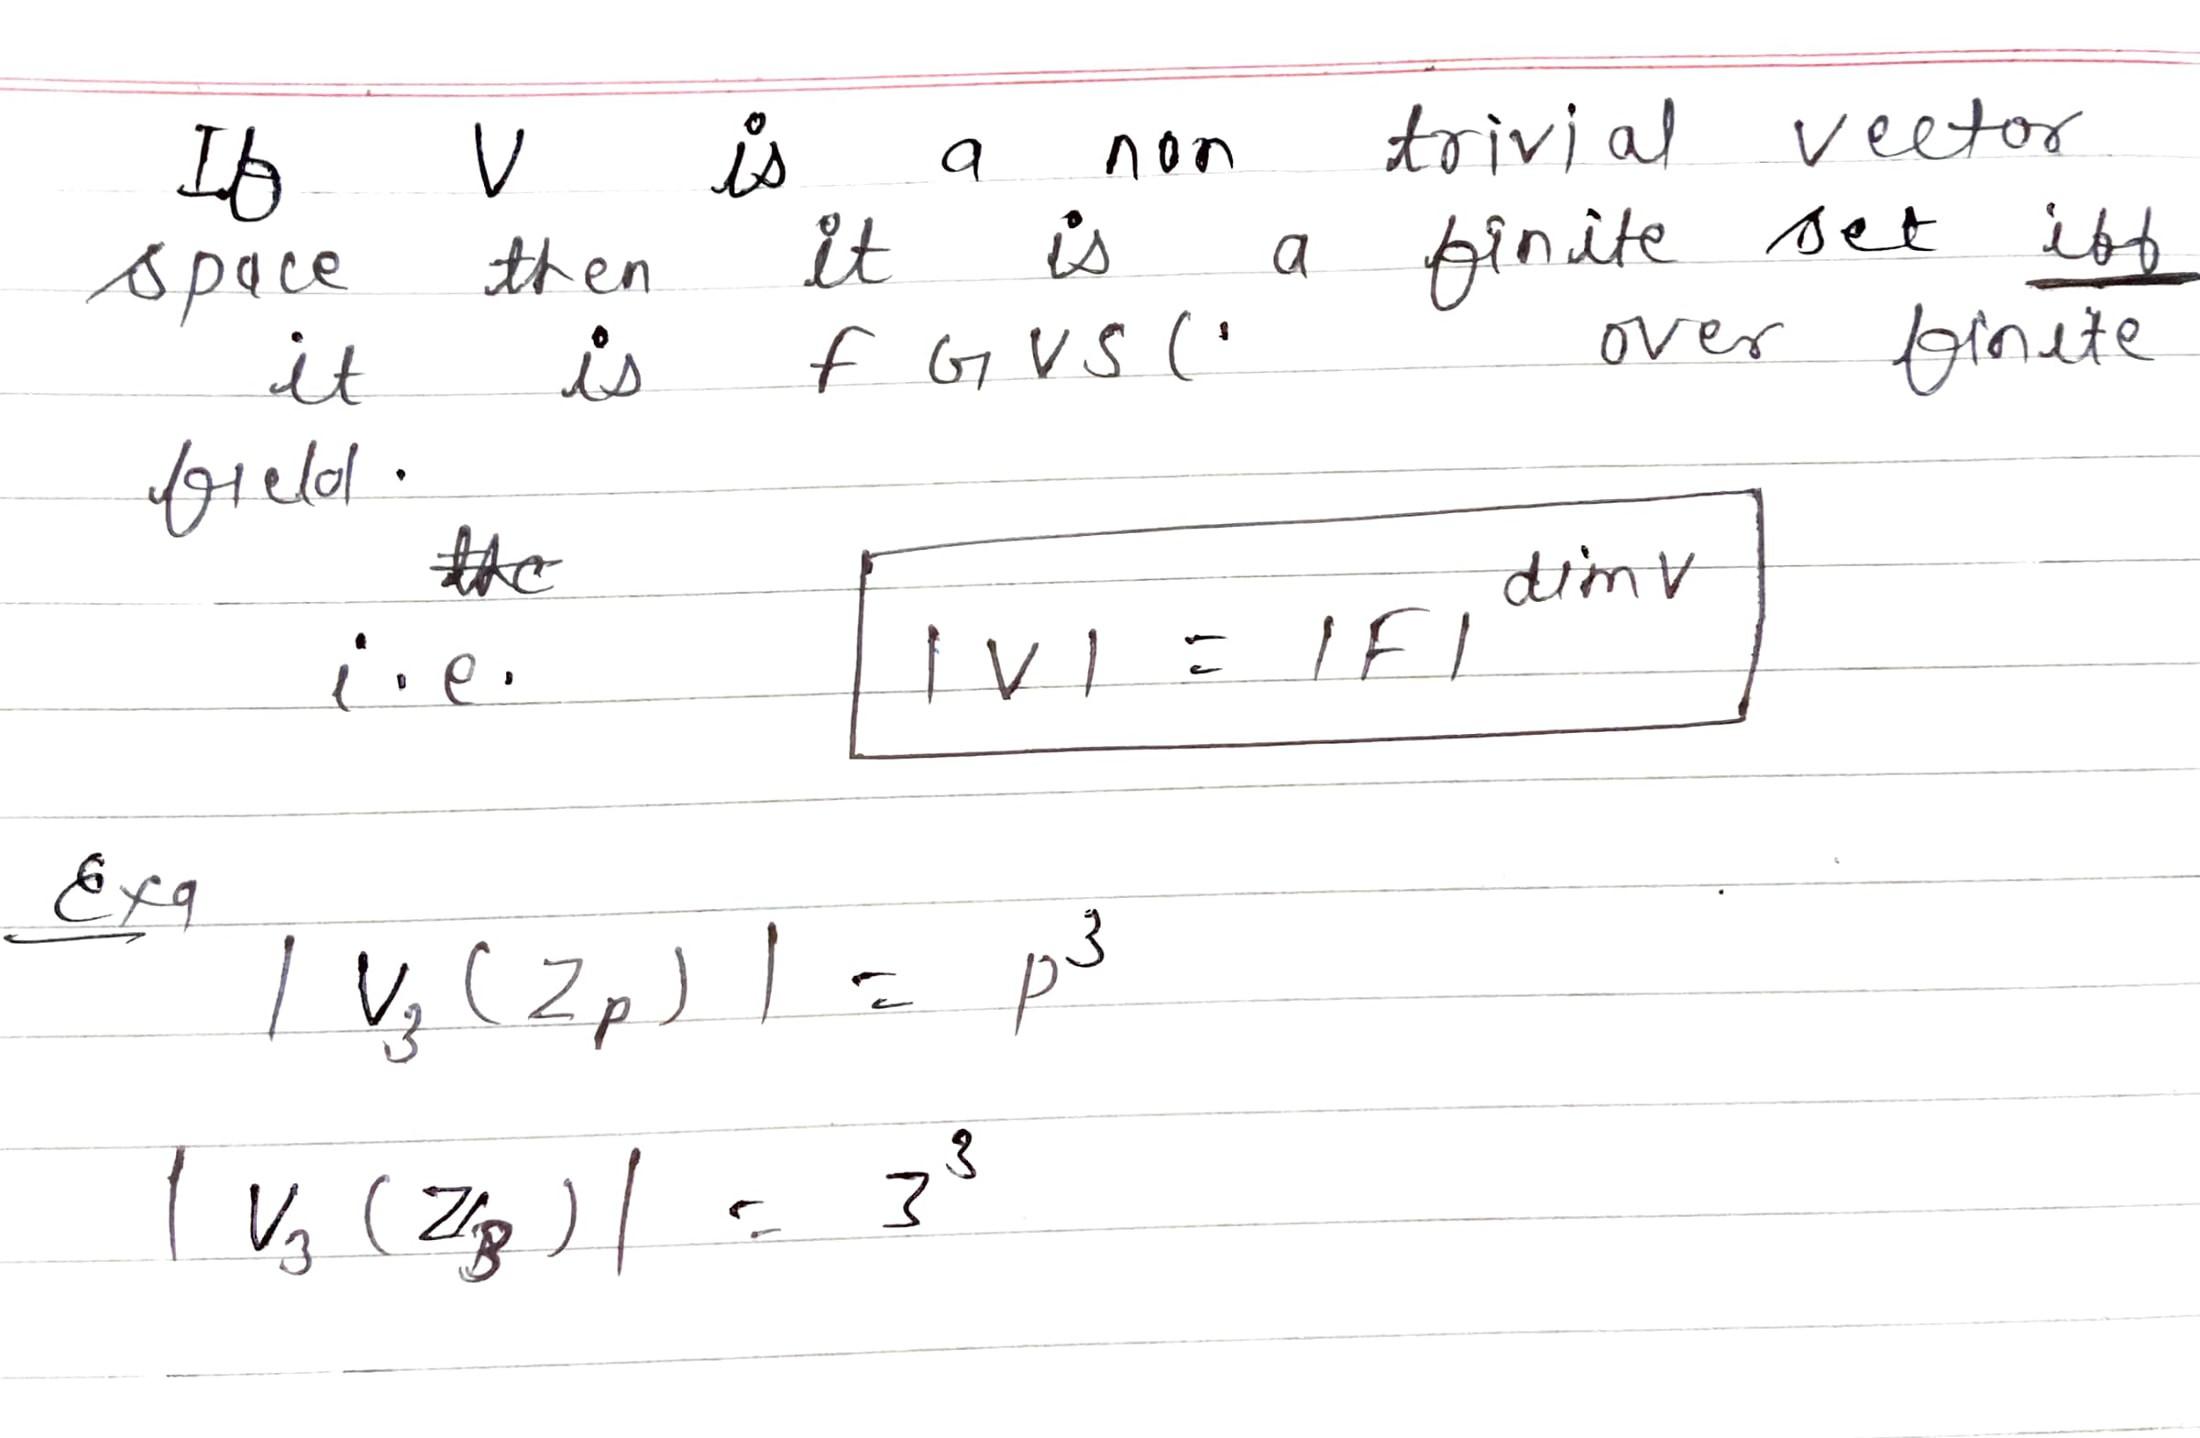 If V is a non trivial vector
space then it is a finite set iff
it is FGVS (· over finite
field.
the
i.e. |V| = |F|^dim V
Exa
|V₃(Zₚ)| = p³
|V₃(Z₃)| = 3³